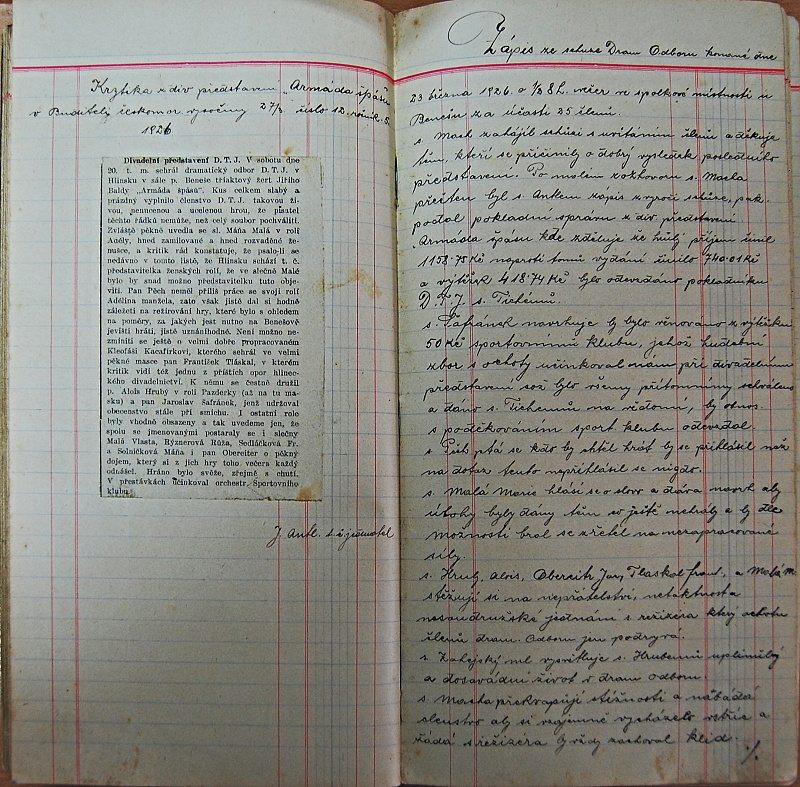 Krytika z div představení „Armáda špásu“
v Buditeli českomor. vysočiny 27/3 číslo 12. ročník 5.
1926
Divadelní představení D. T. J. V sobotu dne
20. t. m. sehrál dramatický odbor D. T. J. v
Hlinsku v sále p. Beneše tříaktový žert Jiřího
Baldy „Armáda špásů“. Kus celkem slabý a
prázdný vyplnilo členstvo D. T. J. takovou ži-
vou, nenucenou a ucelenou hrou, že pisatel
těchto řádků nemůže, než celý soubor pochváliti.
Zvláště pěkně uvedla se sl. Máňa Malá v roli
Adély, hned zamilované a hned rozvaděné že-
nušce, a kritik rád konstatuje, že psalo-li se
nedávno v tomto listě, že Hlinsku schází t. č.
představitelka ženských rolí, že ve slečně Malé
bylo by snad možno představitelku tuto obje-
viti. Pan Pěch neměl příliš práce se svojí rolí
Adélina manžela, zato však jistě dal si hodně
záležeti na režírování hry, které bylo s ohledem
na poměry, za jakých jest nutno na Benešově
jevišti hráti, jistě uznáníhodné. Není možno ne-
zmíniti se ještě o velmi dobře propracovaném
Kleofáši Kacafírkovi, kterého sehrál ve velmi
pěkné masce pan František Tláskal, v kterém
kritik vidí též jednu z příštích opor hlinec-
kého divadelnictví. K němu se čestně družil
p. Alois Hrubý v roli Pazderky (až na tu ma-
sku) a pan Jaroslav Šafránek, jenž udržoval
obecenstvo stále při smíchu. I ostatní role
byly vhodně obsazeny a tak uvedeme jen, že
spolu se jmenovanými postaraly se i slečny
Malá Vlasta, Rýznerová Růža, Sedláčková Fr.
a Solničková Máňa i pan Obereiter o pěkný
dojem, který si z jich hry toho večera každý
odnášel. Hráno bylo svěže, zřejmě s chutí.
V přestávkách účinkoval orchestr Sportovního
klubu.
J. Antl. t. č. jednatel
Zápis ze schůze Dram Odboru konané dne
23 března 1926 o 1/2 8 h. večer ve spolkové místnosti u
Benešů za účasti 25 členů.
s. Mach zahájil schůzi s uvítáním členů a děkuje
těm, kteří se přičinili o dobrý výsledek posledního
představení. Po malém rozhovoru s. Macha
přečten byl s. Antlem zápis z výroční schůze, pak
podal pokladní zprávu z div představení
„Armáda špásu kde zděluje že hrubý příjem činil
1158.75 Kč naproti tomu vydání činilo 740.01 Kč
a výtěžek 418.74 Kč bylo odevzdáno pokladníku
D. T. J. s. Tichému.
s. Šafránek navrhuje by bylo věnováno z výtěžku
50 Kč sportovnímu klubu, jehož hudební
sbor s ochoty účinkoval nám při divadelním
představení což bylo všemy přítomnými schváleno
a dáno s. Tichému na vědomí, by obnos
s poděkováním sport klubu odevzdal.
s Pěch ptá se kdo by chtěl hrát by se přihlásil než
na dotaz tento nepřihlásil se nigdo.
s. Malá Marie hlásí se o slovo a dává návrh aby
úlohy byly dány těm co ještě nehráli a by dle
možnosti bral se zřetel na nezapracované
síly.
s. Hrubý, Alois, Obereitr Jar, Tlaskal frant, a Malá M
stěžují si na nepřátelství, netaktnost a
nesoudružské jednání s režizéra který ochotu
členů dram. Odboru jen podrývá.
s. Zahejský ml vysvětluje s. Hrubému uplinulý
a dosavádní život v dram odboru.
s. Macha překvapují stížnosti a nabádá
členstvo aby si vzájemně vycházelo vstříc a
žádá s režizéra by vždy zachoval klid.
./.